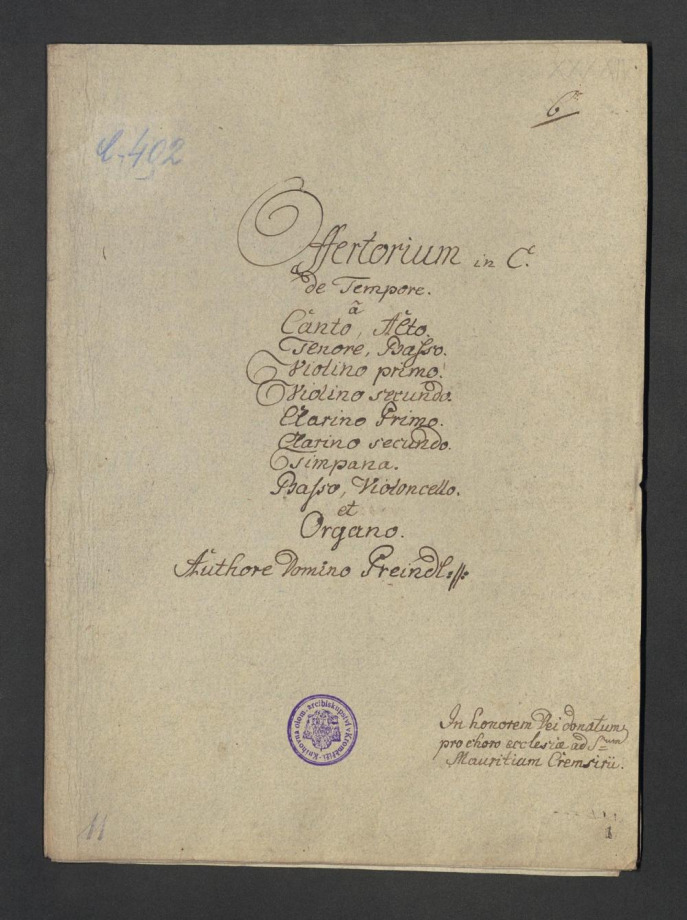 6
C. 492
Offertorium in C.
de Tempore.
à
Canto, Alto.
Tenore, Basso.
Violino primo.
Violino secundo.
Clarino Primo.
Clarino secundo.
Tsimpana.
Basso, Violoncello.
et
Organo.
Authore Domino Preindl
Knihovna olom. arcibiskupství v Kroměříži
In honorem Dei donatum
pro choro ecclesiæ ad S
Mauritium Cremsirii.
11
1